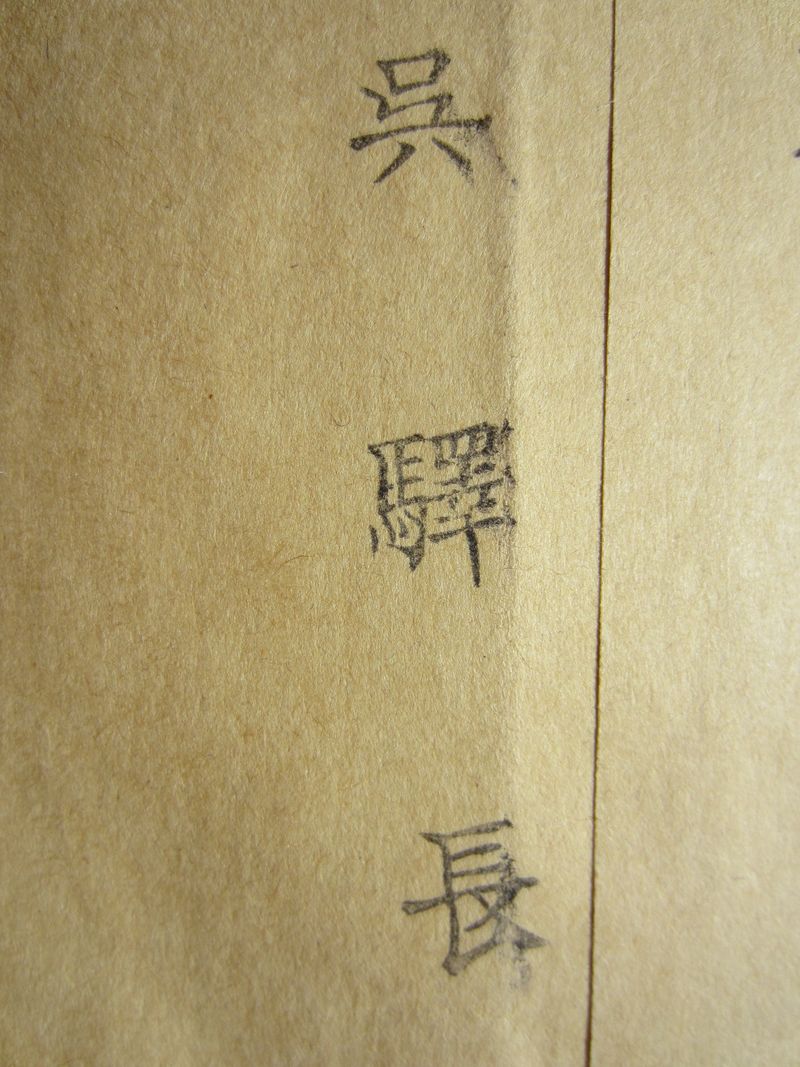 呉驛長